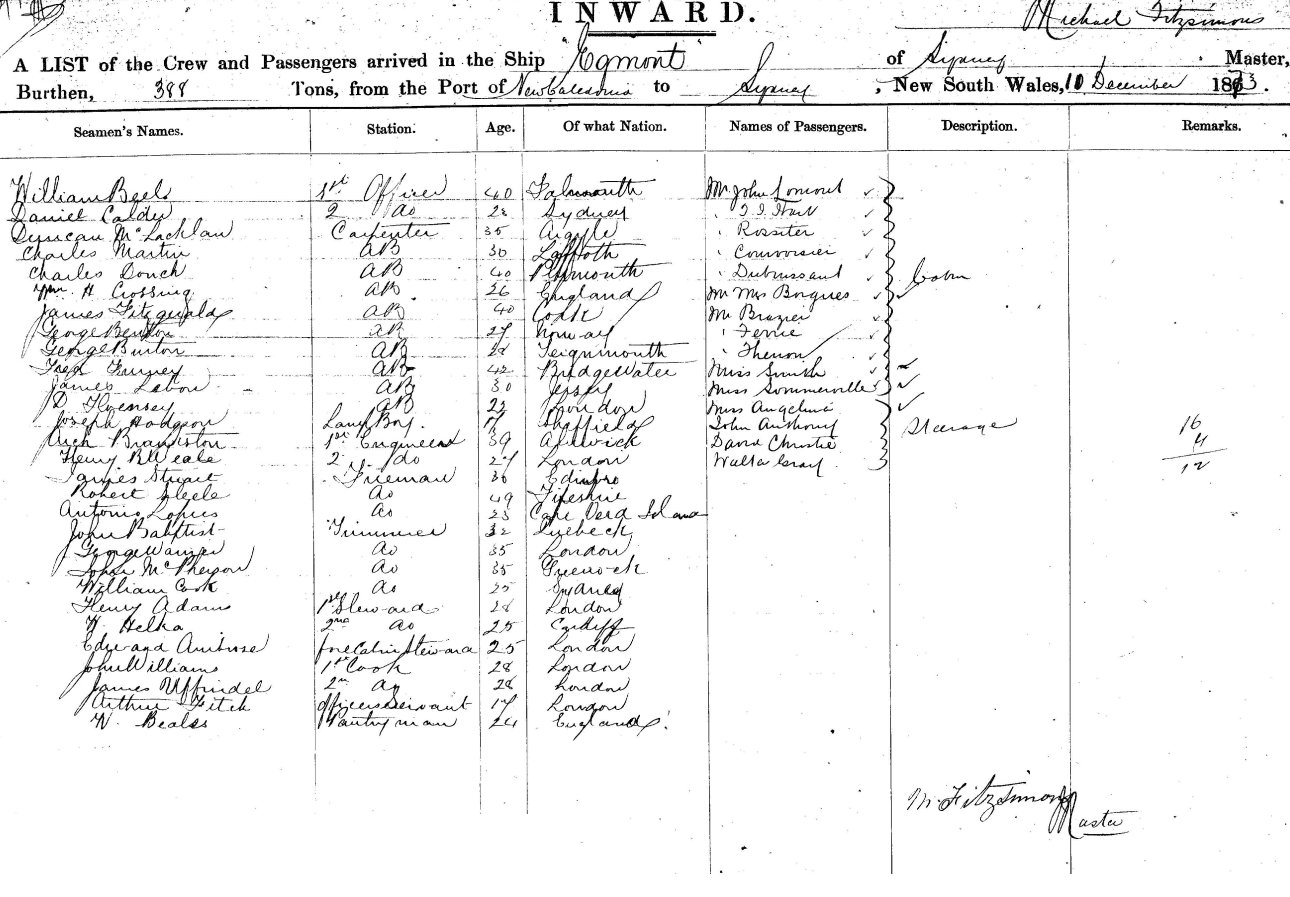 INWARD.
Michael Fitzsimons
A LIST of the Crew and Passengers arrived in the Ship "Egmont" of Sydney Master,
Burthen, 388 Tons, from the Port of New Caledonia to Sydney, New South Wales, 10 December 1873.
Seamen's Names. Station. Age. Of what Nation. Names of Passengers. Description. Remarks.
William Beels 1st Officer 40 Falmouth Mr John
Daniel Calder 2 do Sydney
Duncan McLachlan Carpenter 35 Argyle " Rossiter
Charles Martin AB 30
Charles Donch AB 40 Plymouth Cabin
Wm H Crossing AB 26 England Mr Mrs Borgues
James Fitzgerald AB 40 Cork Mr Brazier
George Benton AB 27 Norway " Ferrie
George Burton AB 28 Teignmouth " Thenon
AB 42 Bridgewater Miss Smith
James Lebou AB 30 Jersey Miss Sommerville
D AB 23 London Miss Angelina
Joseph Hodgson Lamp Boy. 17 Sheffield John Anthony Steerage 16
Brankston 1st Engineer 39 Alnwick David Christie 4
Henry B Weale 2 do 27 London Walter Gray 12
James Stuart Fireman 36 Edinbro
Robert Steele do 49 Fifeshire
Antonio Lopies do 23 Cape Verd Island
John Baptist Trimmer 32
George Warner do 35 London
John McPherson do 35 Greenock
William Cook do 25
Henry Adams 1st Steward 28 London
W Helka 2nd do 25 Cardiff
Edward Ambrose fore Cabin Steward 25 London
John Williams 1st Cook 28 London
James Uffindel 2nd do 28 London
Arthur Fitch officers servant 17 London
W. Beales Pantryman 24 England
M. Fitzsimons
Master